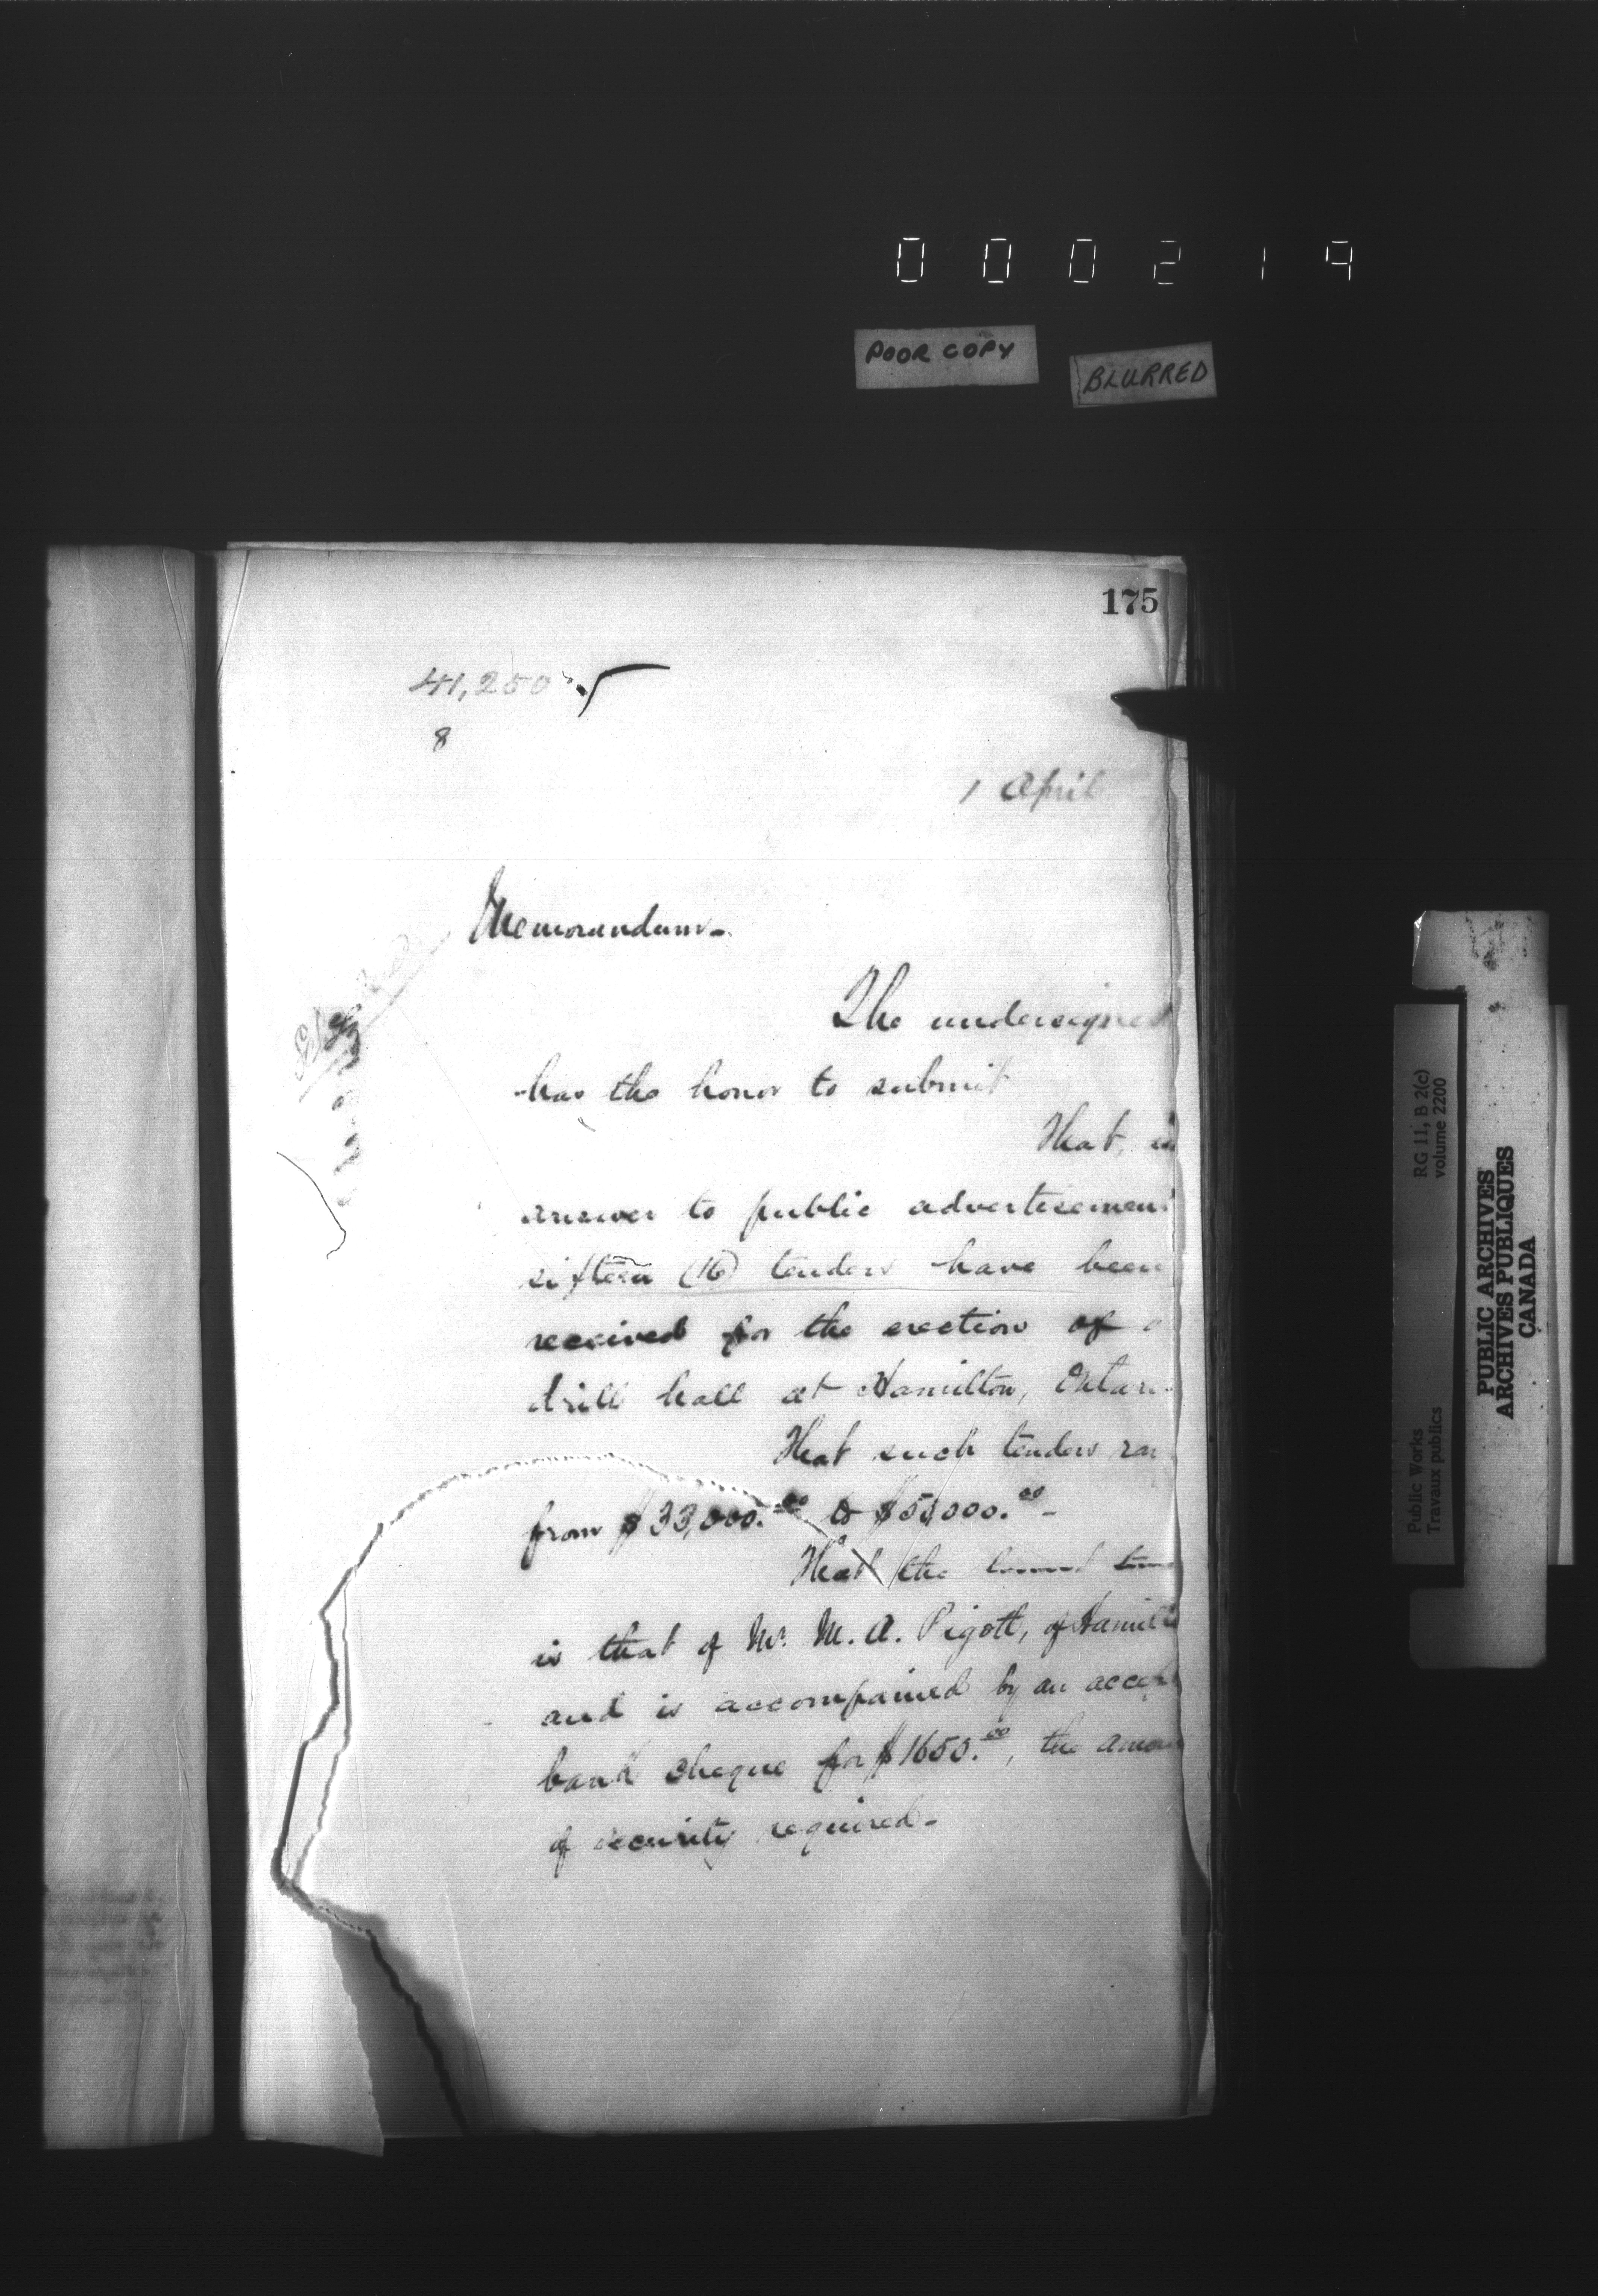 000219
POOR COPY
BLURRED
175
41,250
8
1 April
Memorandum-
The undersigned
has the honor to submit
That, in
answer to public advertisement
sixteen (16) tenders have been
received for the erection of a
drill hall at Hamilton, Ontari
That such tenders ran
from $33,000.00 to $5,000.00 -
That the lowest
is that of Mr. M. A. Pigott, of Hamilt
and is accompanied by an accep
bank cheque for $1650.00, the amou
of security required-
RG 11, B 2(c)
volume 2200
Public Works
Travaux publics
PUBLIC ARCHIVES
ARCHIVES PUBLIQUES
CANADA